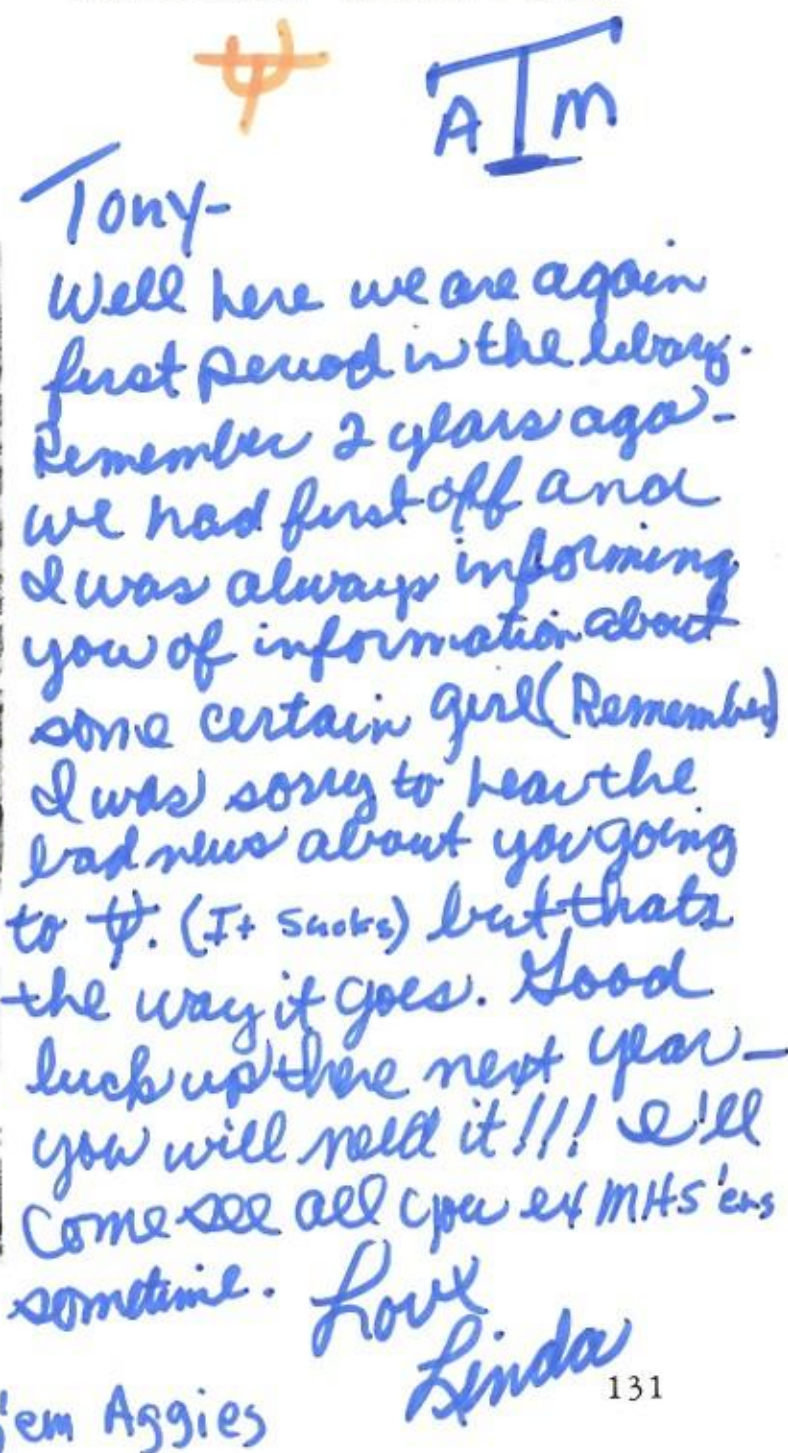 A T M
Tony-
Well here we are again
first period in the libary.
Remember 2 years ago-
we had first off and
I was always informing
you of information about
some certain girl (Remember)
I was sorry to hear the
bad news about you going
to (It sucks) but thats
the way it goes. Good
luck up there next year-
you will need it!!! I'll
come see all you ex MHS'ers
sometime. Love
Linda
131
'em Aggies